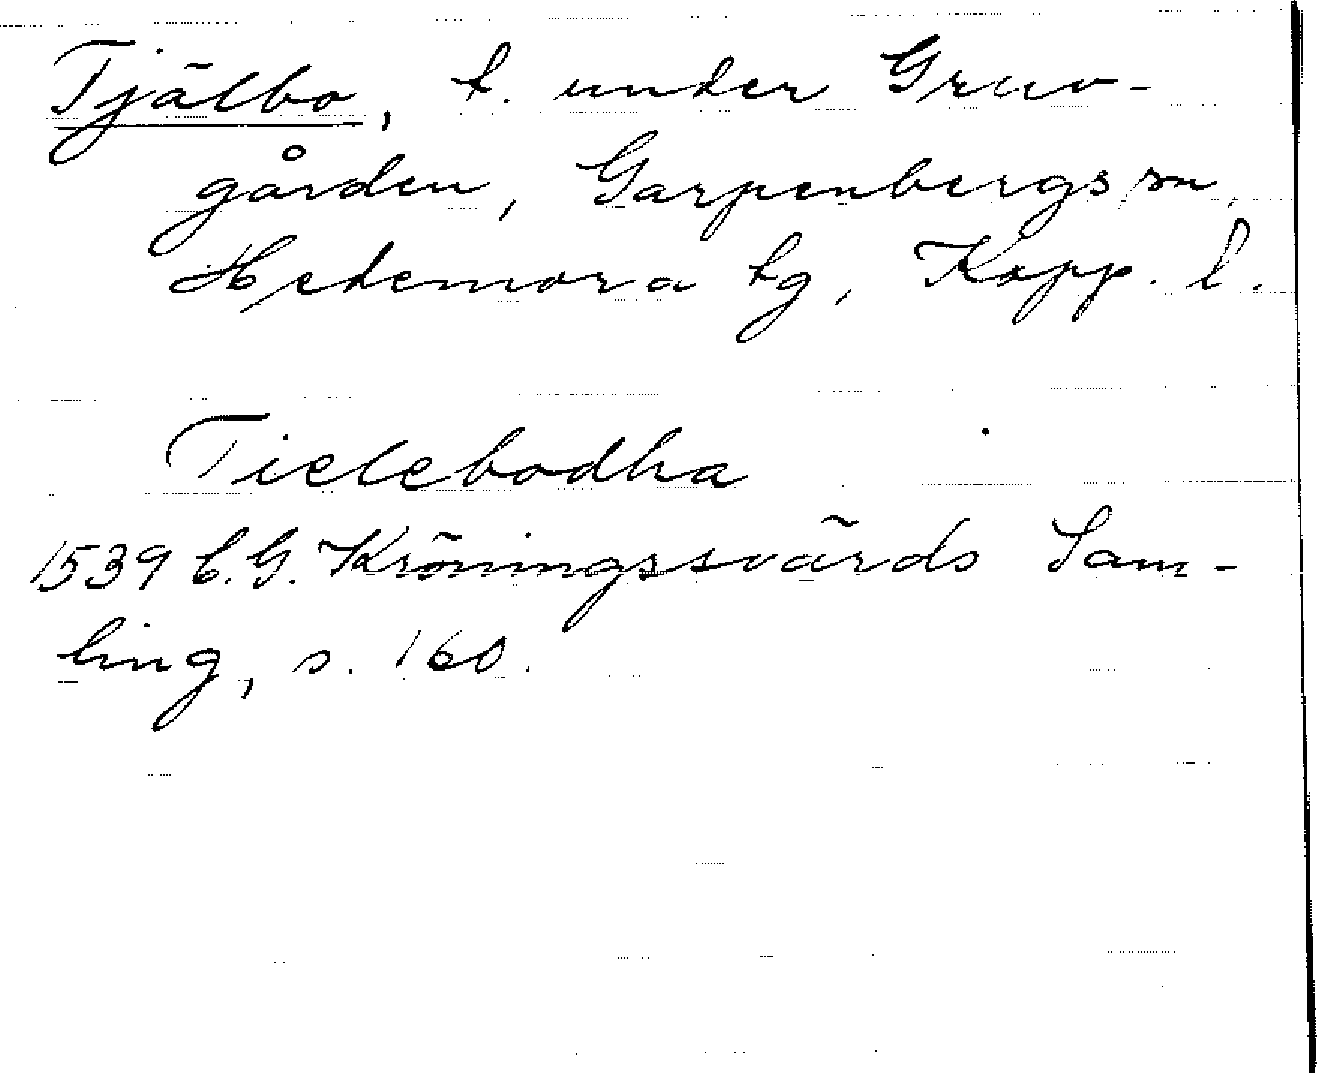 Tjälbo, t. under Gruv-
gården, Garpenbergs sn,
Hedemora tg, Kopp. l.
Tielebodha
1539 C.G. Kröningssvärds Sam-
ling, s. 160.